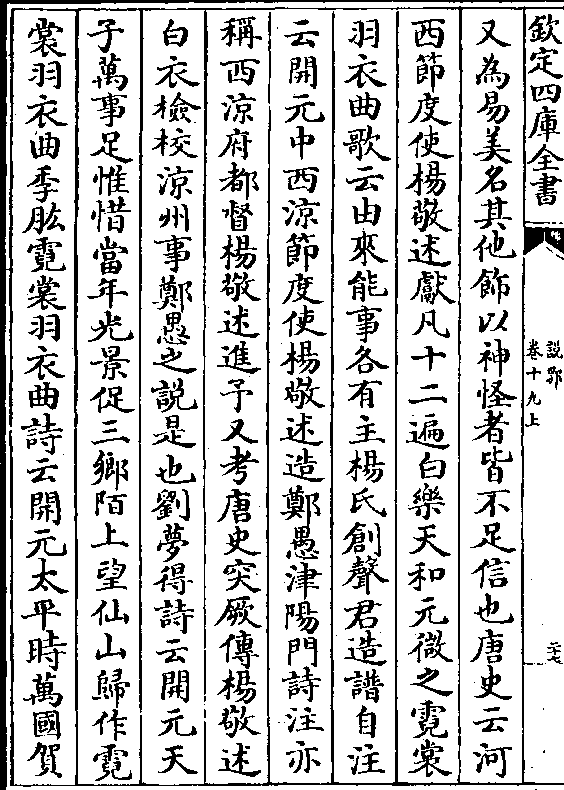 欽定四庫全書
說郛
卷十九上
二十七
又為易美名其他飾以神怪者皆不足信也唐史云河
西節度使楊敬述獻凡十二遍白樂天和元微之霓裳
羽衣曲歌云由來能事各有主楊氏創聲君造譜自注
云開元中西涼節度使楊敬述造鄭愚津陽門詩注亦
稱西涼府都督楊敬述進予又考唐史突厥傳楊敬述
白衣檢校涼州事鄭愚之說是也劉夢得詩云開元天
子萬事足惟惜當年光景促三鄉陌上望仙山歸作霓
裳羽衣曲李肱霓裳羽衣曲詩云開元太平時萬國賀